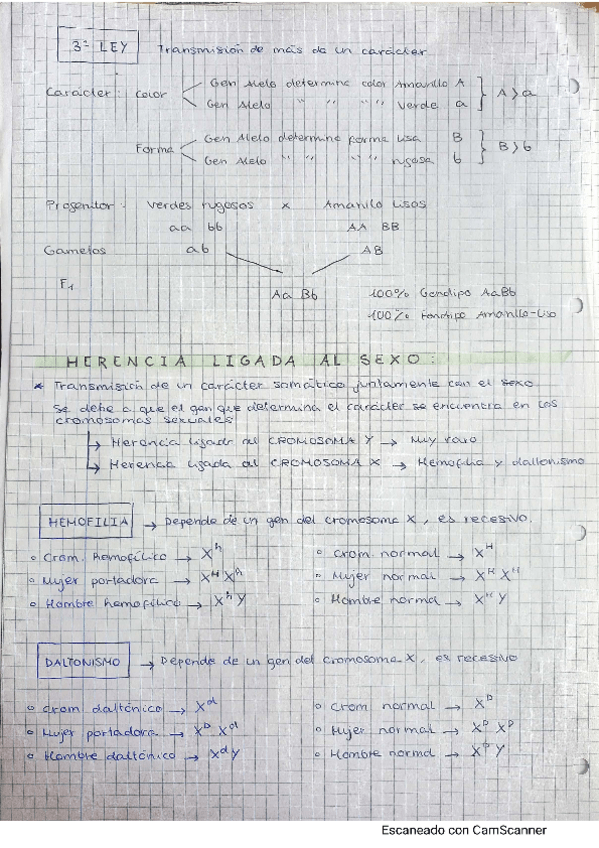 3ª LEY Transmisión de más de un carácter
Carácter: Color Gen Alelo determina color Amarillo A A > a
Gen Alelo " " " " verde a
Forma Gen Alelo determina forma lisa B B > b
Gen Alelo " " " " rugosa b
Progenitor: verdes rugosos x Amarillo lisos
aa bb AA BB
Gametos ab AB
F1 Aa Bb 100% Genotipo AaBb
100% Fenotipo Amarillo-Liso
HERENCIA LIGADA AL SEXO:
* Transmisión de un carácter somático juntamente con el sexo
Se debe a que el gen que determina el carácter se encuentra en los
cromosomas sexuales
↳ Herencia ligada al CROMOSOMA Y → Muy raro
↳ Herencia ligada al CROMOSOMA X → Hemofilia y daltonismo
HEMOFILIA → Depende de un gen del cromosoma X, es recesivo.
o Crom. hemofílico → Xʰ o crom. normal → Xᴴ
o Mujer portadora → Xᴴ Xʰ o Mujer normal → Xᴴ Xᴴ
o Hombre hemofílico → Xʰ Y o Hombre normal → Xᴴ Y
DALTONISMO → Depende de un gen del cromosoma X, es recesivo
o crom daltónico → Xᵈ o Crom normal → Xᴰ
o Mujer portadora → Xᴰ Xᵈ o Mujer normal → Xᴰ Xᴰ
o Hombre daltónico → Xᵈ Y o Hombre normal → Xᴰ Y
Escaneado con CamScanner